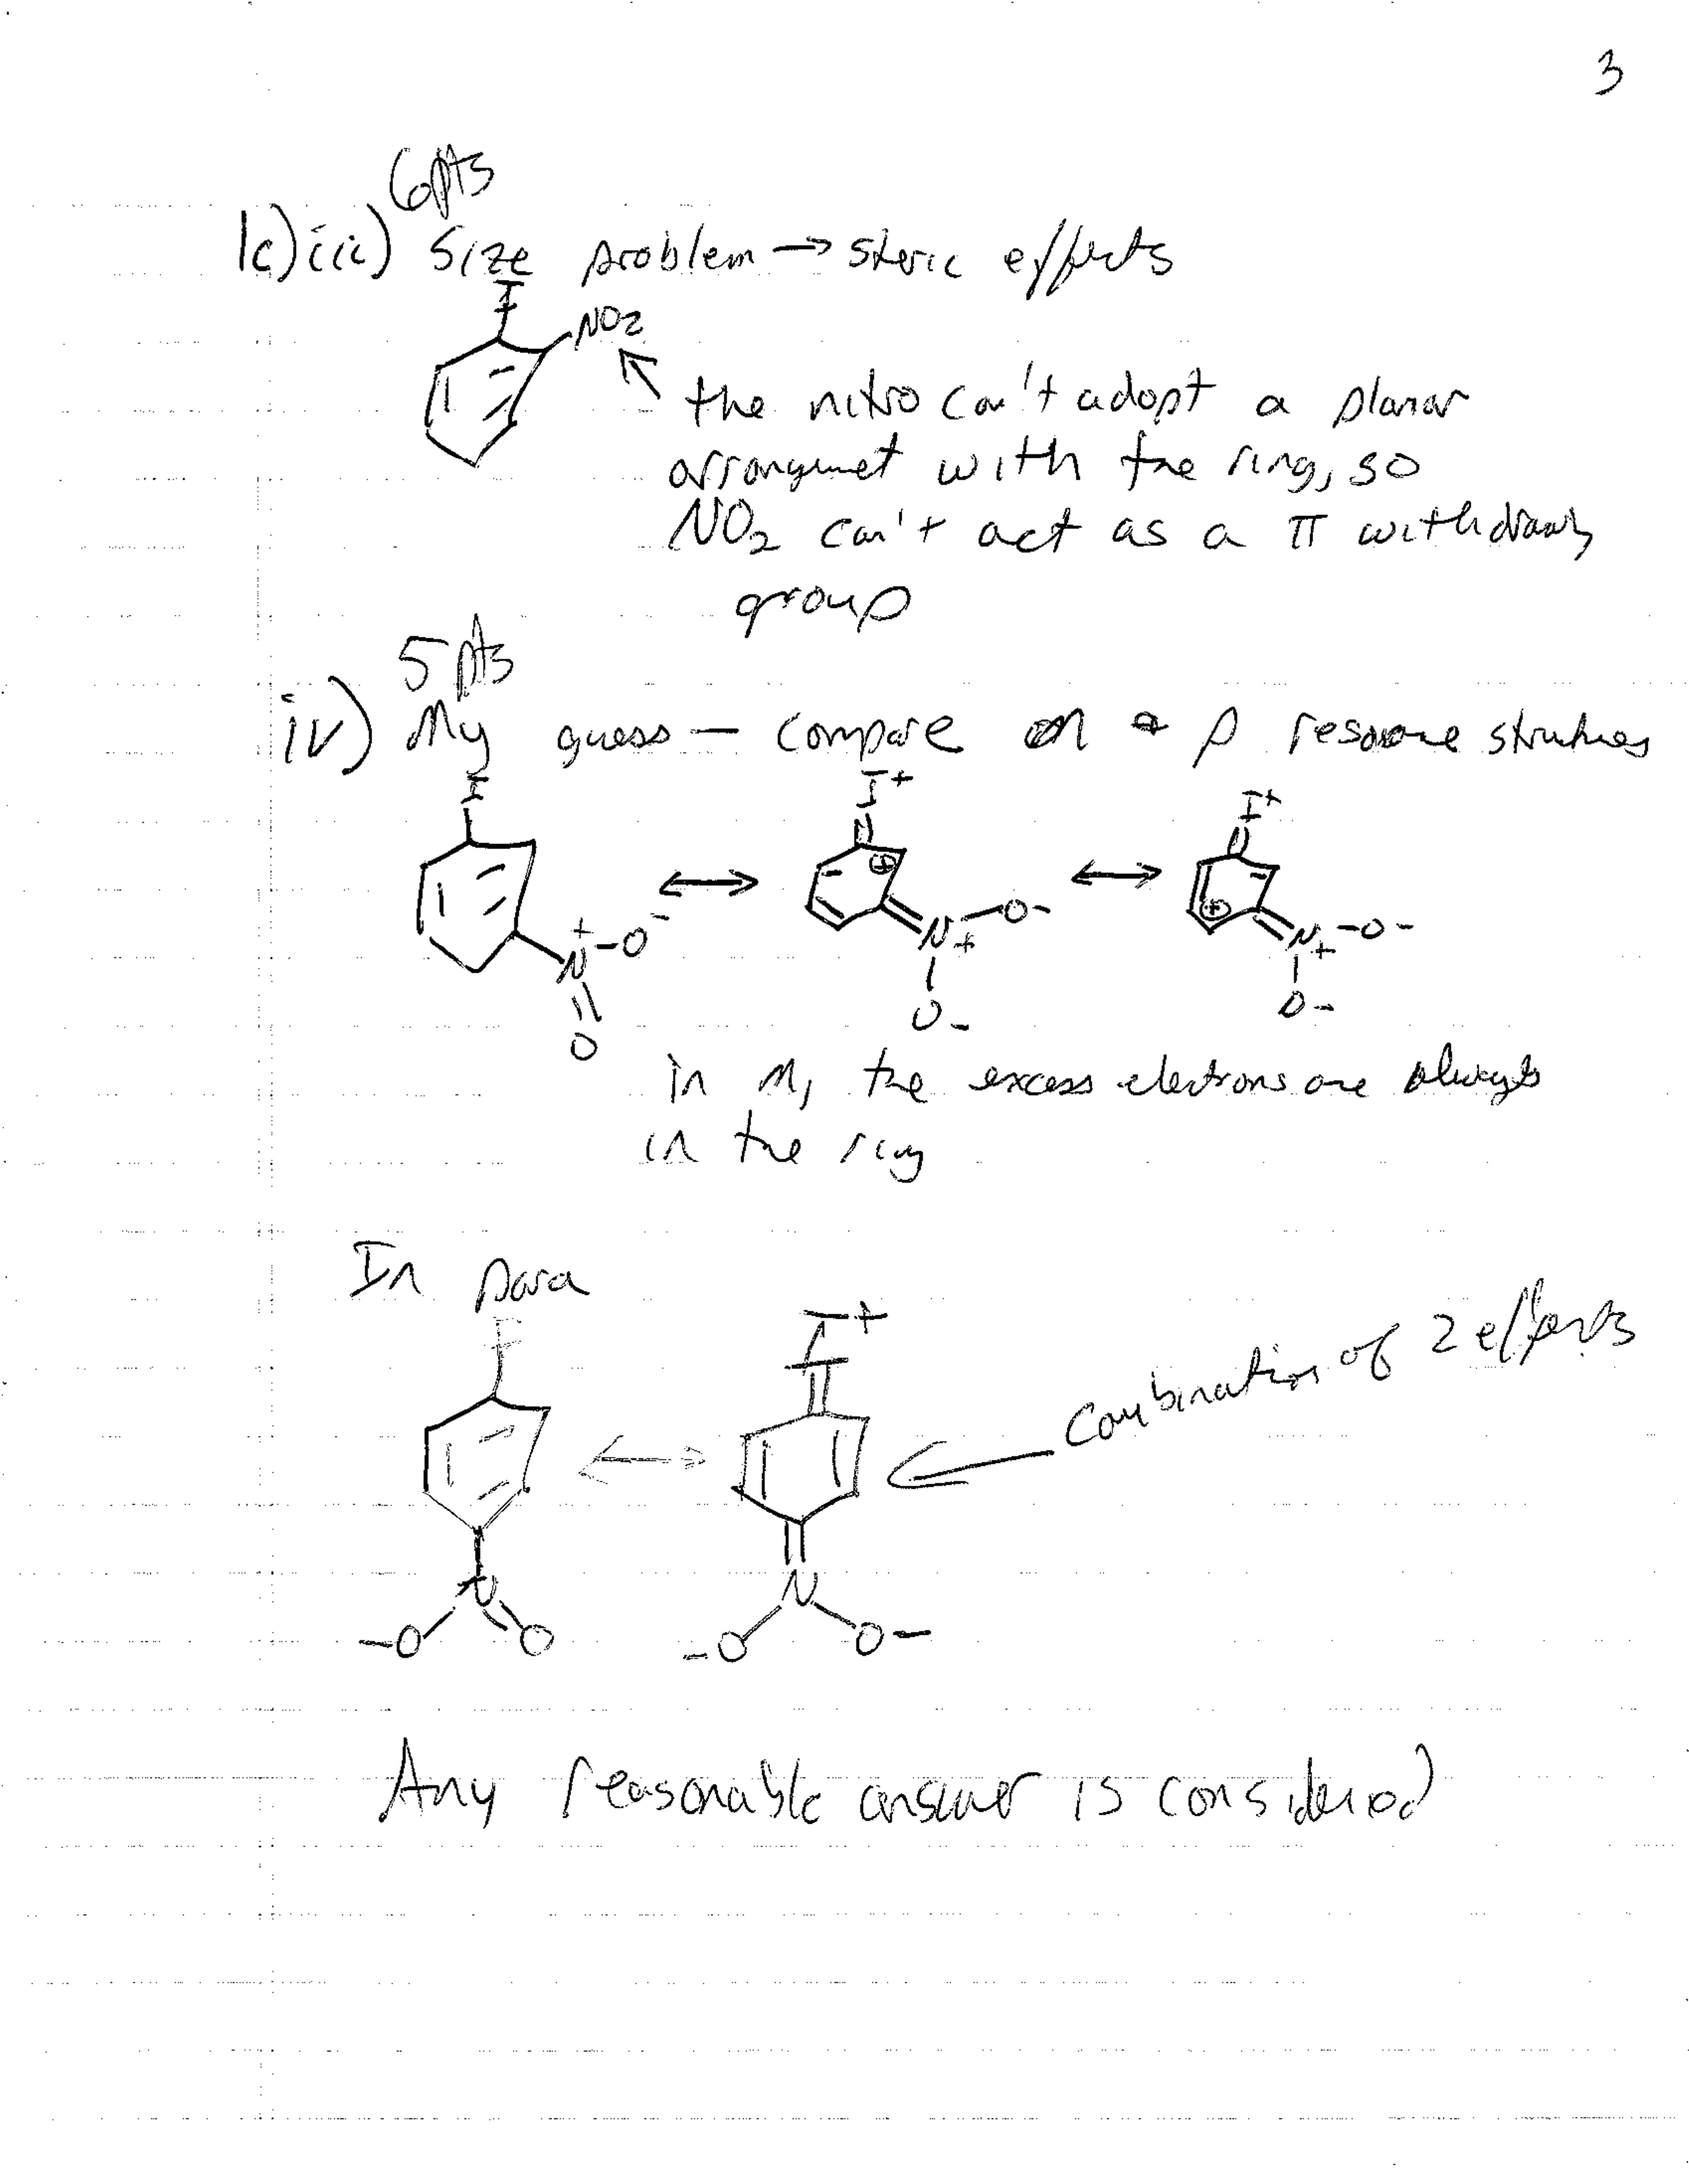 3
6pts
1c)iii) Size problem → steric effects
I
NO2
the nitro can't adopt a planar
arrangmet with the ring, so
NO2 can't act as a π withdrawing
group
5 pts
iv) My guess — compare m + p resonance structures
I I+ I+
N+ -O- O
N+ -O- O-
N+ -O- O-
in m, the excess electrons are always
in the ring
In para
I I+
combination of 2 effects
N N
-O O -O O-
Any reasonable answer is considered